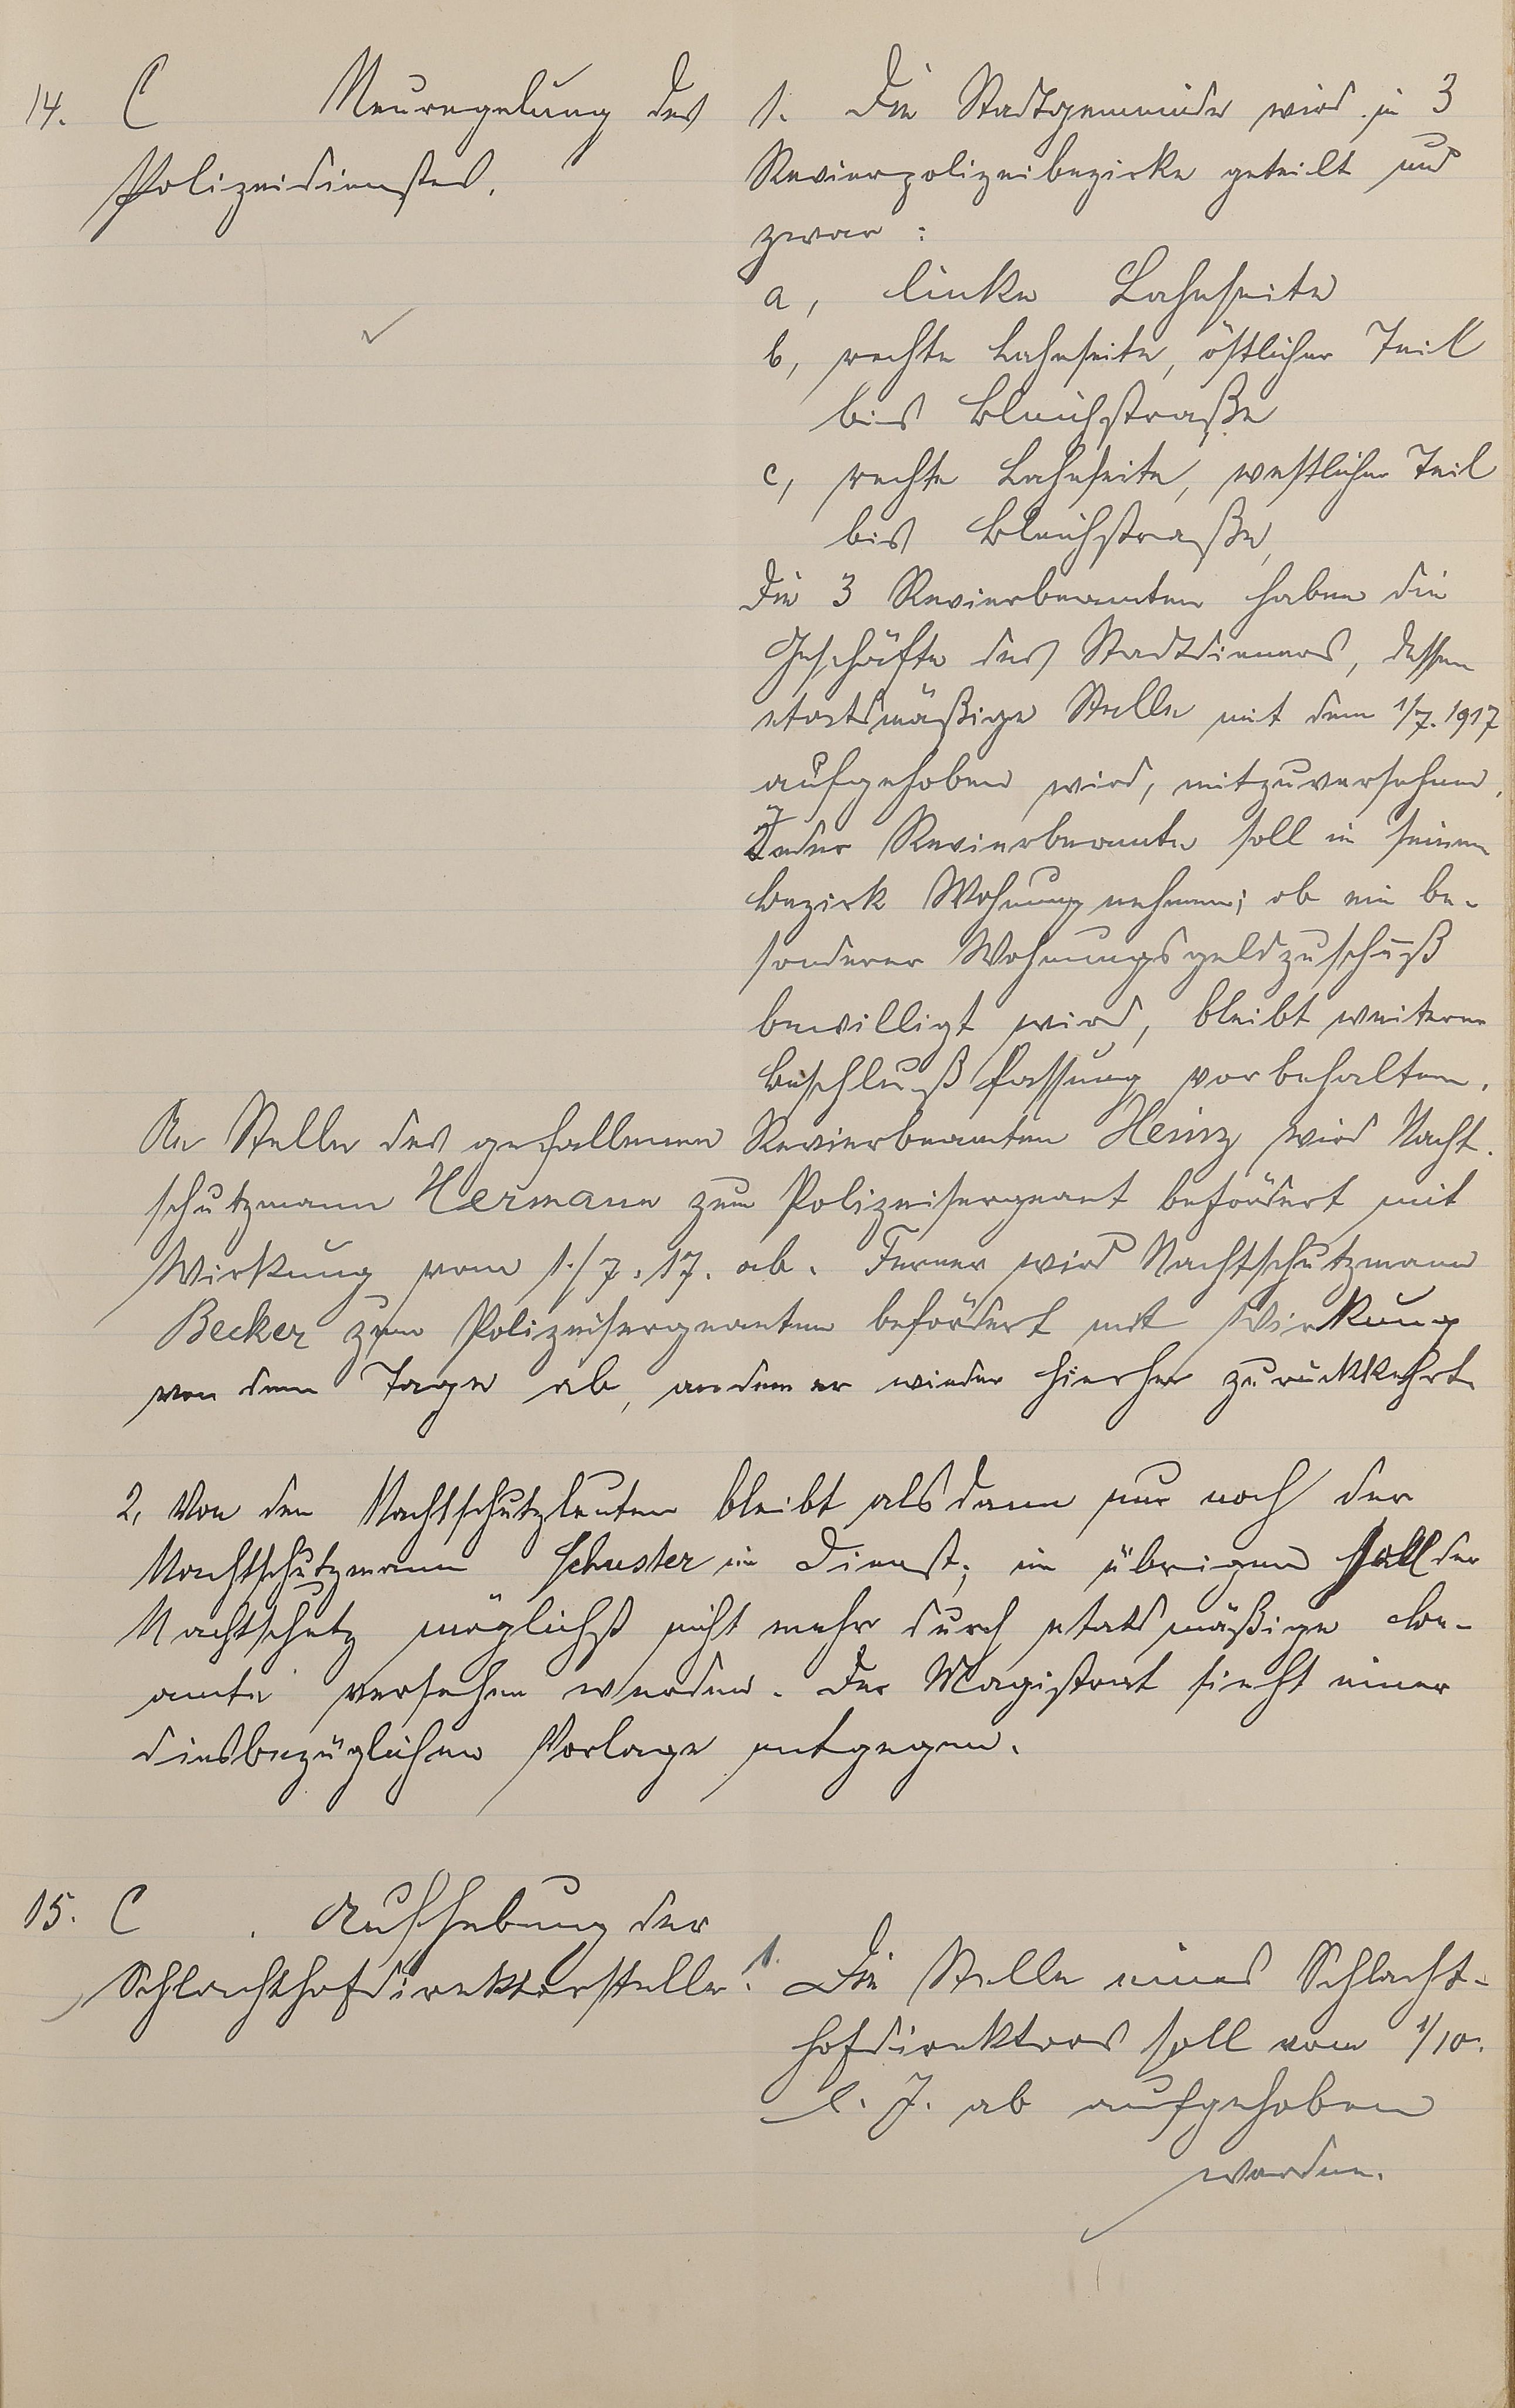 14. C Neuregelung des
Polizeidienstes.
1. Die Stadtgemeinde wird in 3
Revierpolizeibezirke geteilt und
zwar :
a, linke Lahnseite
b, rechte Lahnseite, östlicher Teil
bis Bleichstraße
c, rechte Lahnseite, westlicher Teil
bis Bleichstraße,
Die 3 Revierbeamten haben die
Geschäfte des Stadtdieners, dessen
etatsmäßige Stelle mit dem 1/7. 1917
aufgehoben wird, mitzuversehen.
Jeder Revierbeamte soll in seinem
Bezirk Wohnung nehmen; ob ein be-
sonderer Wohnungsgeldzuschuß
bewilligt wird, bleibt weiterer
Beschlußfassung vorbehalten.
An Stelle des gefallenen Revierbeamten Heinz wird Nacht-
schutzmann Hermann zum Polizeisergeant befördert mit
Wirkung vom 1./7. 17. ab. Ferner wird Nachtschutzmann
Becker zum Polizeisergeanten befördert mit Wirkung
von dem Tage ab, an dem er wieder hierher zurückkehrt.
2, Von den Nachtschutzleuten bleibt alsdann nur noch der
Nachtschutzmann Schuster im Dienst; im übrigen soll der
Nachtschutz möglichst nicht mehr durch etatsmäßige Be-
amte versehen werden. Der Magistrat sieht einer
diesbezüglichen Vorlage entgegen.
15. C Aufhebung der
Schlachthofdirektorstelle.
1. Die Stelle eines Schlacht-
hofdirektors soll vom 1/10.
l. J. ab aufgehoben
werden.